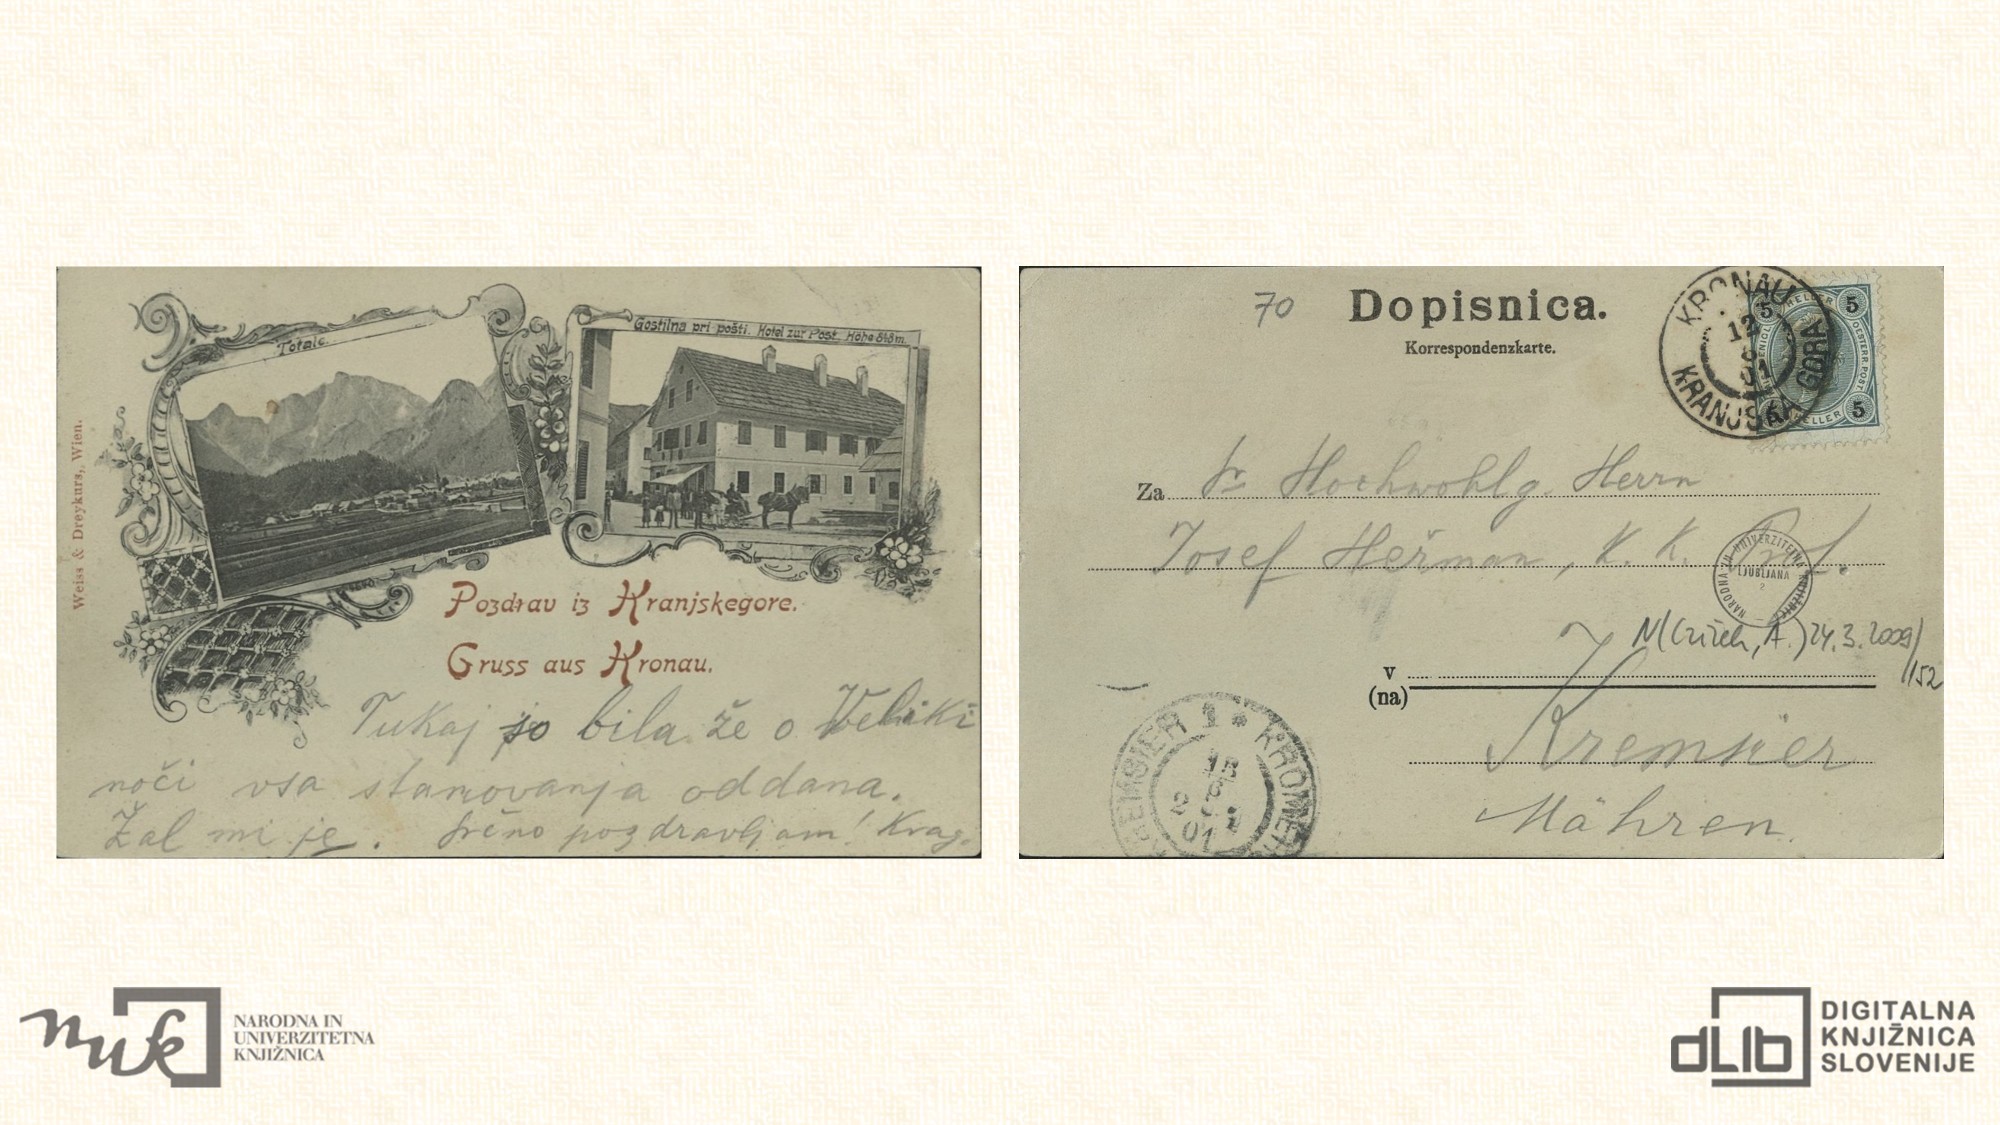 Totale.
Gostilna pri pošti. Hotel zur Post. Höhe 848 m.
Weiss & Dreykurs, Wien.
Pozdrav iz Kranjskegore.
Gruss aus Kronau.
Tukaj so bila že o Veliki
noči vsa stanovanja oddana.
Žal mi je. Srčno pozdravljam! Krag.
70
Dopisnica.
Korrespondenzkarte.
KRONAU
12
8
01
KRANJSKA GORA
5 HELLER 5
OESTERR. POST
5 HELLER 5
Za Sr Hochwohlg. Herrn
Josef Heřman, K. K. Prof.
NARODNA IN UNIVERZITETNA KNJIŽNICA
LJUBLJANA
24.3.2009/
152
v
(na)
Kremsier
Mähren.
KREMSIER 1 * KROMĚŘ
13
8
01
NARODNA IN
UNIVERZITETNA
KNJIŽNICA
nuk
dLib
DIGITALNA
KNJIŽNICA
SLOVENIJE